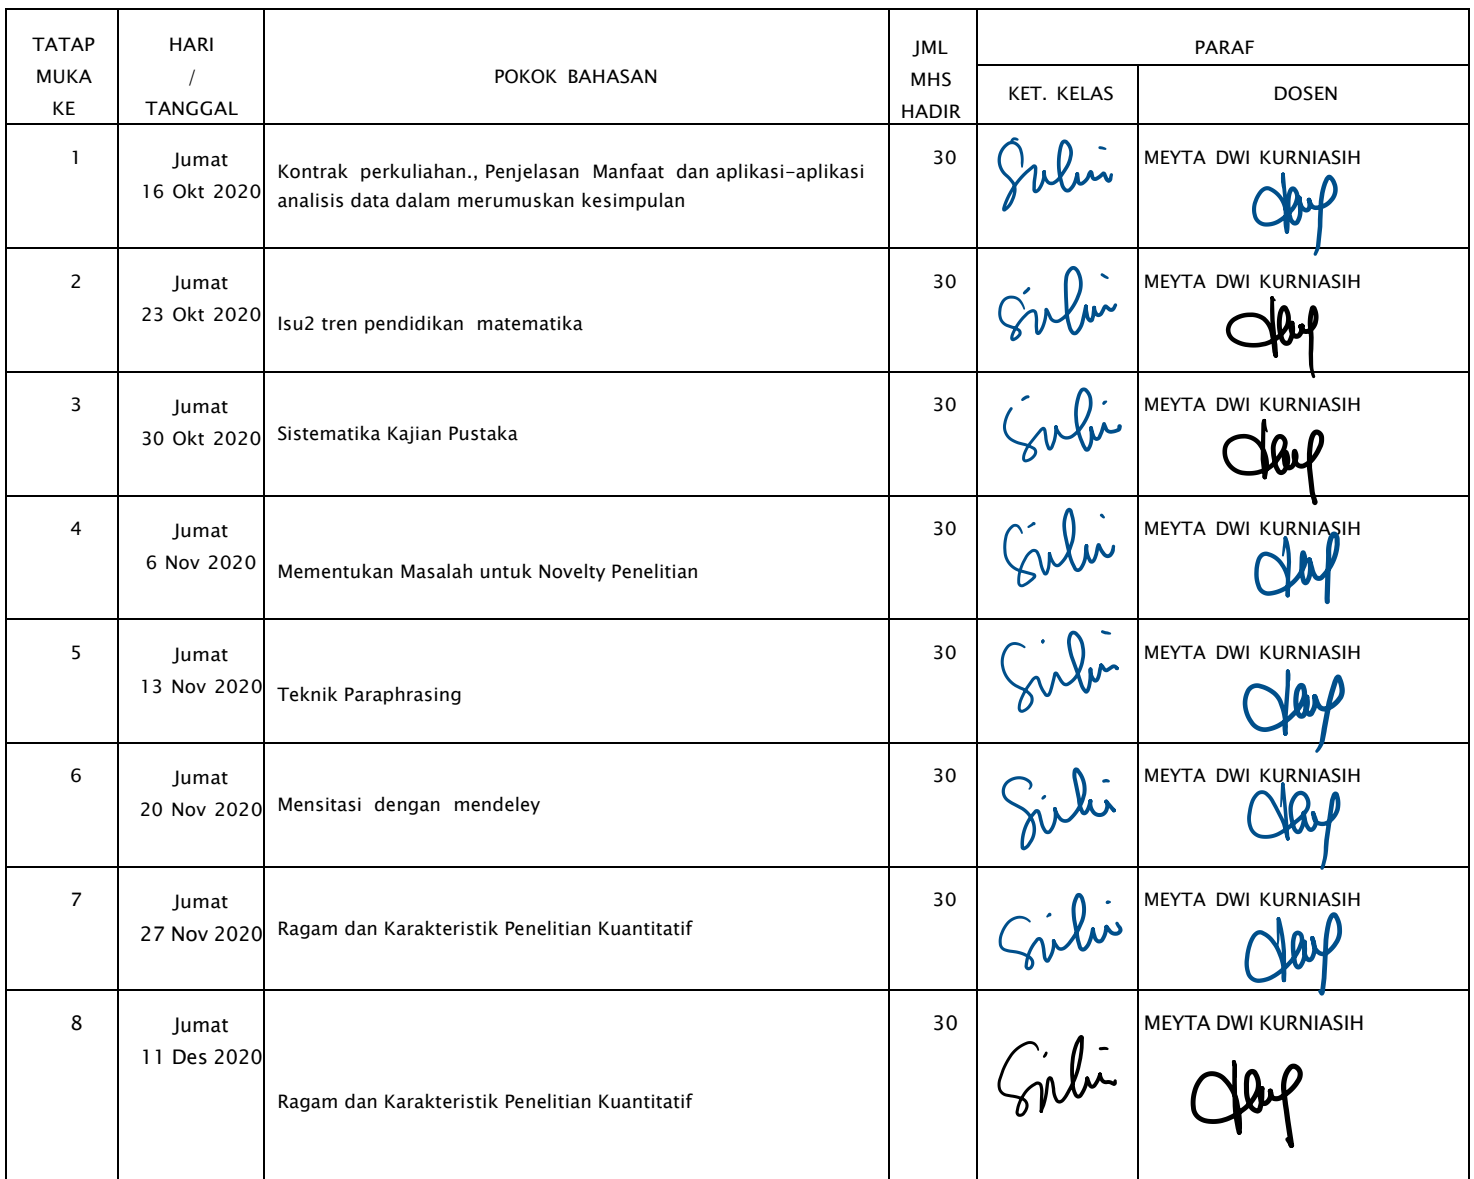 TATAP MUKA KE
HARI / TANGGAL
POKOK BAHASAN
JML MHS HADIR
PARAF
KET. KELAS
DOSEN
1
Jumat
16 Okt 2020
Kontrak perkuliahan., Penjelasan Manfaat dan aplikasi-aplikasi
analisis data dalam merumuskan kesimpulan
30
MEYTA DWI KURNIASIH
2
Jumat
23 Okt 2020
Isu2 tren pendidikan matematika
30
MEYTA DWI KURNIASIH
3
Jumat
30 Okt 2020
Sistematika Kajian Pustaka
30
MEYTA DWI KURNIASIH
4
Jumat
6 Nov 2020
Mementukan Masalah untuk Novelty Penelitian
30
MEYTA DWI KURNIASIH
5
Jumat
13 Nov 2020
Teknik Paraphrasing
30
MEYTA DWI KURNIASIH
6
Jumat
20 Nov 2020
Mensitasi dengan mendeley
30
MEYTA DWI KURNIASIH
7
Jumat
27 Nov 2020
Ragam dan Karakteristik Penelitian Kuantitatif
30
MEYTA DWI KURNIASIH
8
Jumat
11 Des 2020
Ragam dan Karakteristik Penelitian Kuantitatif
30
MEYTA DWI KURNIASIH